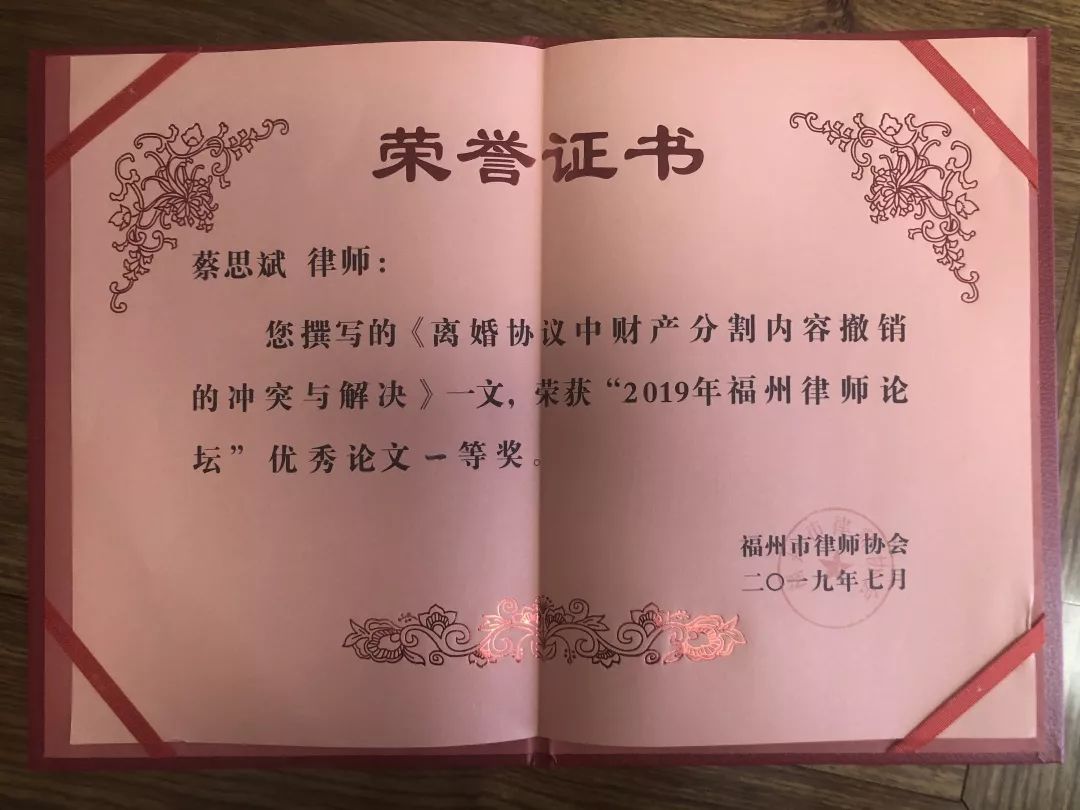 荣誉证书
蔡思斌 律师：
您撰写的《离婚协议中财产分割内容撤销
的冲突与解决》一文，荣获“2019年福州律师论
坛”优秀论文一等奖。
福州市律师协会
二〇一九年七月